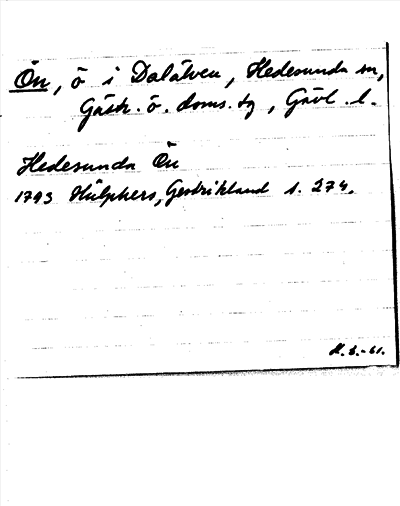 Ön, ö i Dalälven, Hedesunda sn,
Gästr. ö. doms. tg, Gävl. l.
Hedesunda Ön
1793 Hülphers, Gestrikland s. 274.
M.S.-61.